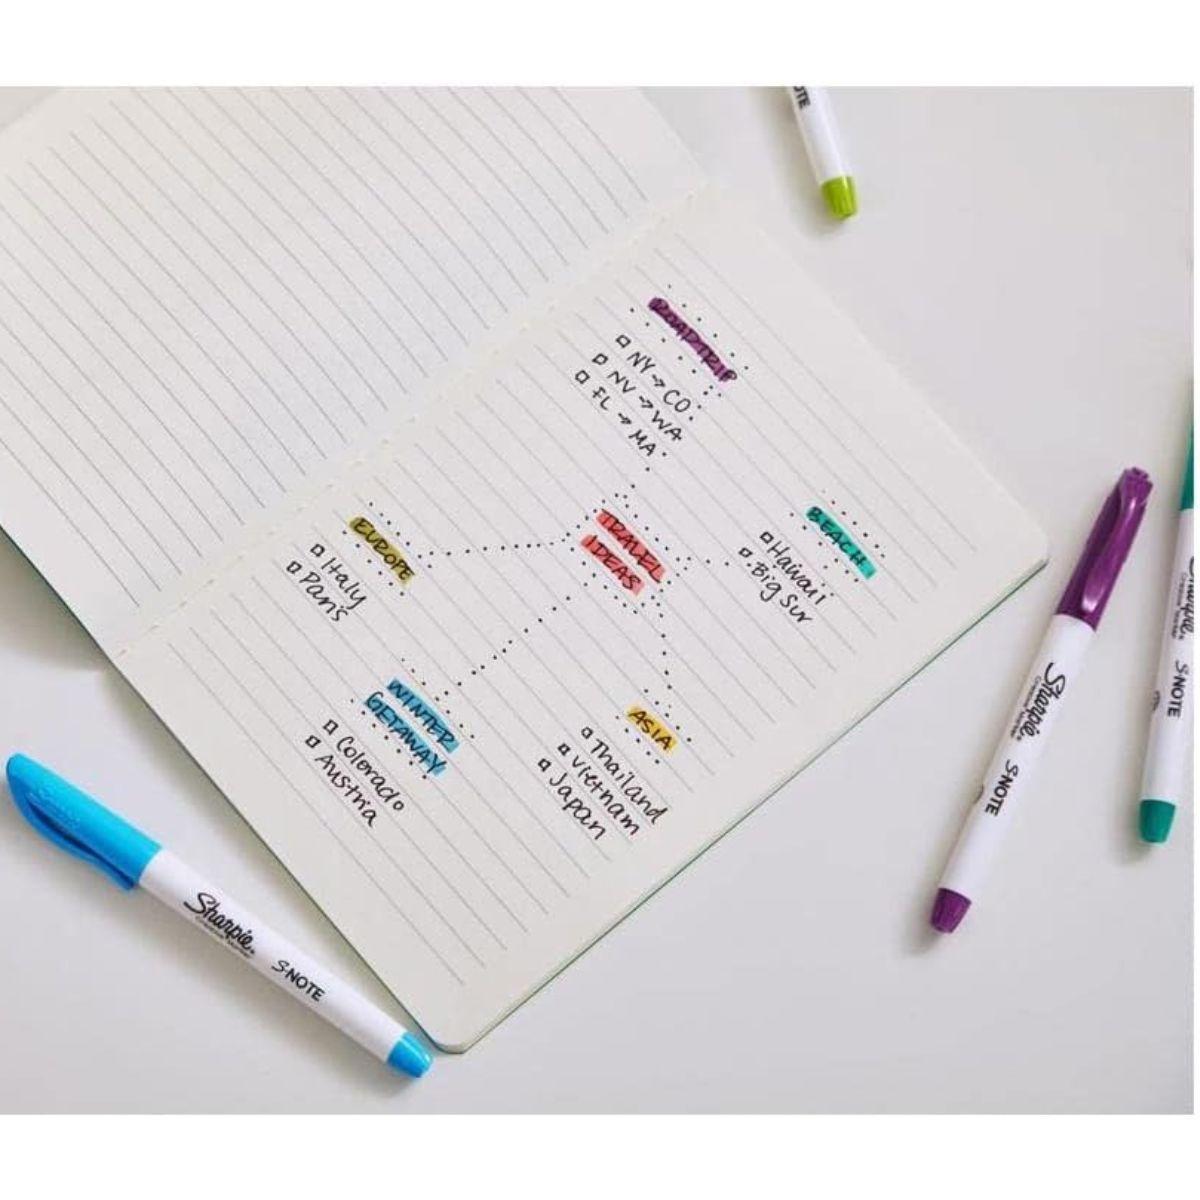 ROADTRIP
NY → CO
NV → WA
FL → MA
EUROPE
Italy
Paris
TRAVEL
IDEAS
BEACH
Haiwaii
Big Sur
WINTER
GETAWAY
Colorado
Austria
ASIA
Thailand
Vietnam
Japan
Sharpie
Creative Marker
S·NOTE
Sharpie
Creative Marker
S·NOTE
Sharpie
S·NOTE
OTE